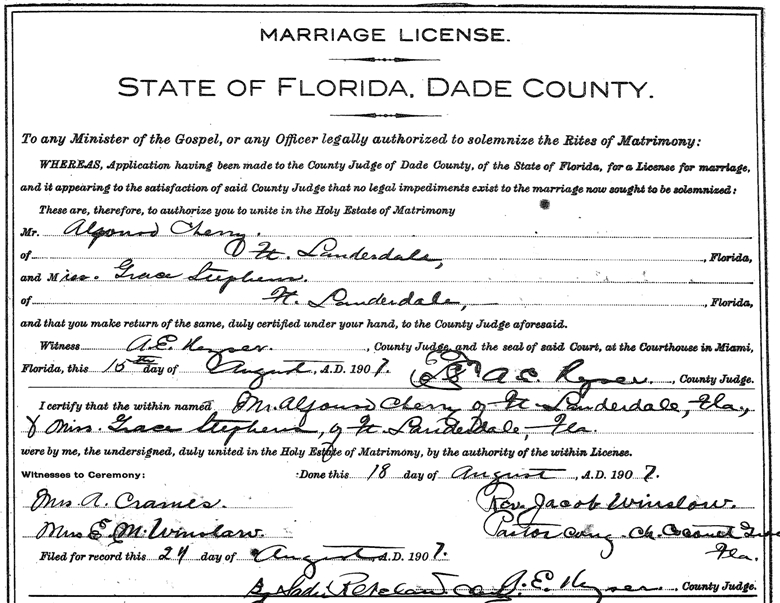 MARRIAGE LICENSE.
STATE OF FLORIDA, DADE COUNTY.
To any Minister of the Gospel, or any Officer legally authorized to solemnize the Rites of Matrimony:
WHEREAS, Application having been made to the County Judge of Dade County, of the State of Florida, for a License for marriage,
and it appearing to the satisfaction of said County Judge that no legal impediments exist to the marriage now sought to be solemnized:
These are, therefore, to authorize you to unite in the Holy Estate of Matrimony
Mr. Alfonso Cherry.
of Ft. Lauderdale, , Florida,
and Miss. Grace Stephens.
of Ft. Lauderdale, , Florida,
and that you make return of the same, duly certified under your hand, to the County Judge aforesaid.
Witness A.E. Heyser. , County Judge, and the seal of said Court, at the Courthouse in Miami,
Florida, this 15th day of August, A.D. 1907. A.E. Heyser. , County Judge.
I certify that the within named Mr. Alfonso Cherry of Ft Lauderdale, Fla.,
& Miss. Grace Stephens, of Ft. Lauderdale, Fla.
were by me, the undersigned, duly united in the Holy Estate of Matrimony, by the authority of the within License.
Witnesses to Ceremony: Done this 18 day of August , A.D. 1907.
Mrs A. Crames. Rev. Jacob Winslow.
Mrs E. M. Winslow. Pastor Cong. Ch. Cocoanut
Filed for record this 24 day of August A.D. 1907. Fla.
By A. E. Heyser. , County Judge.